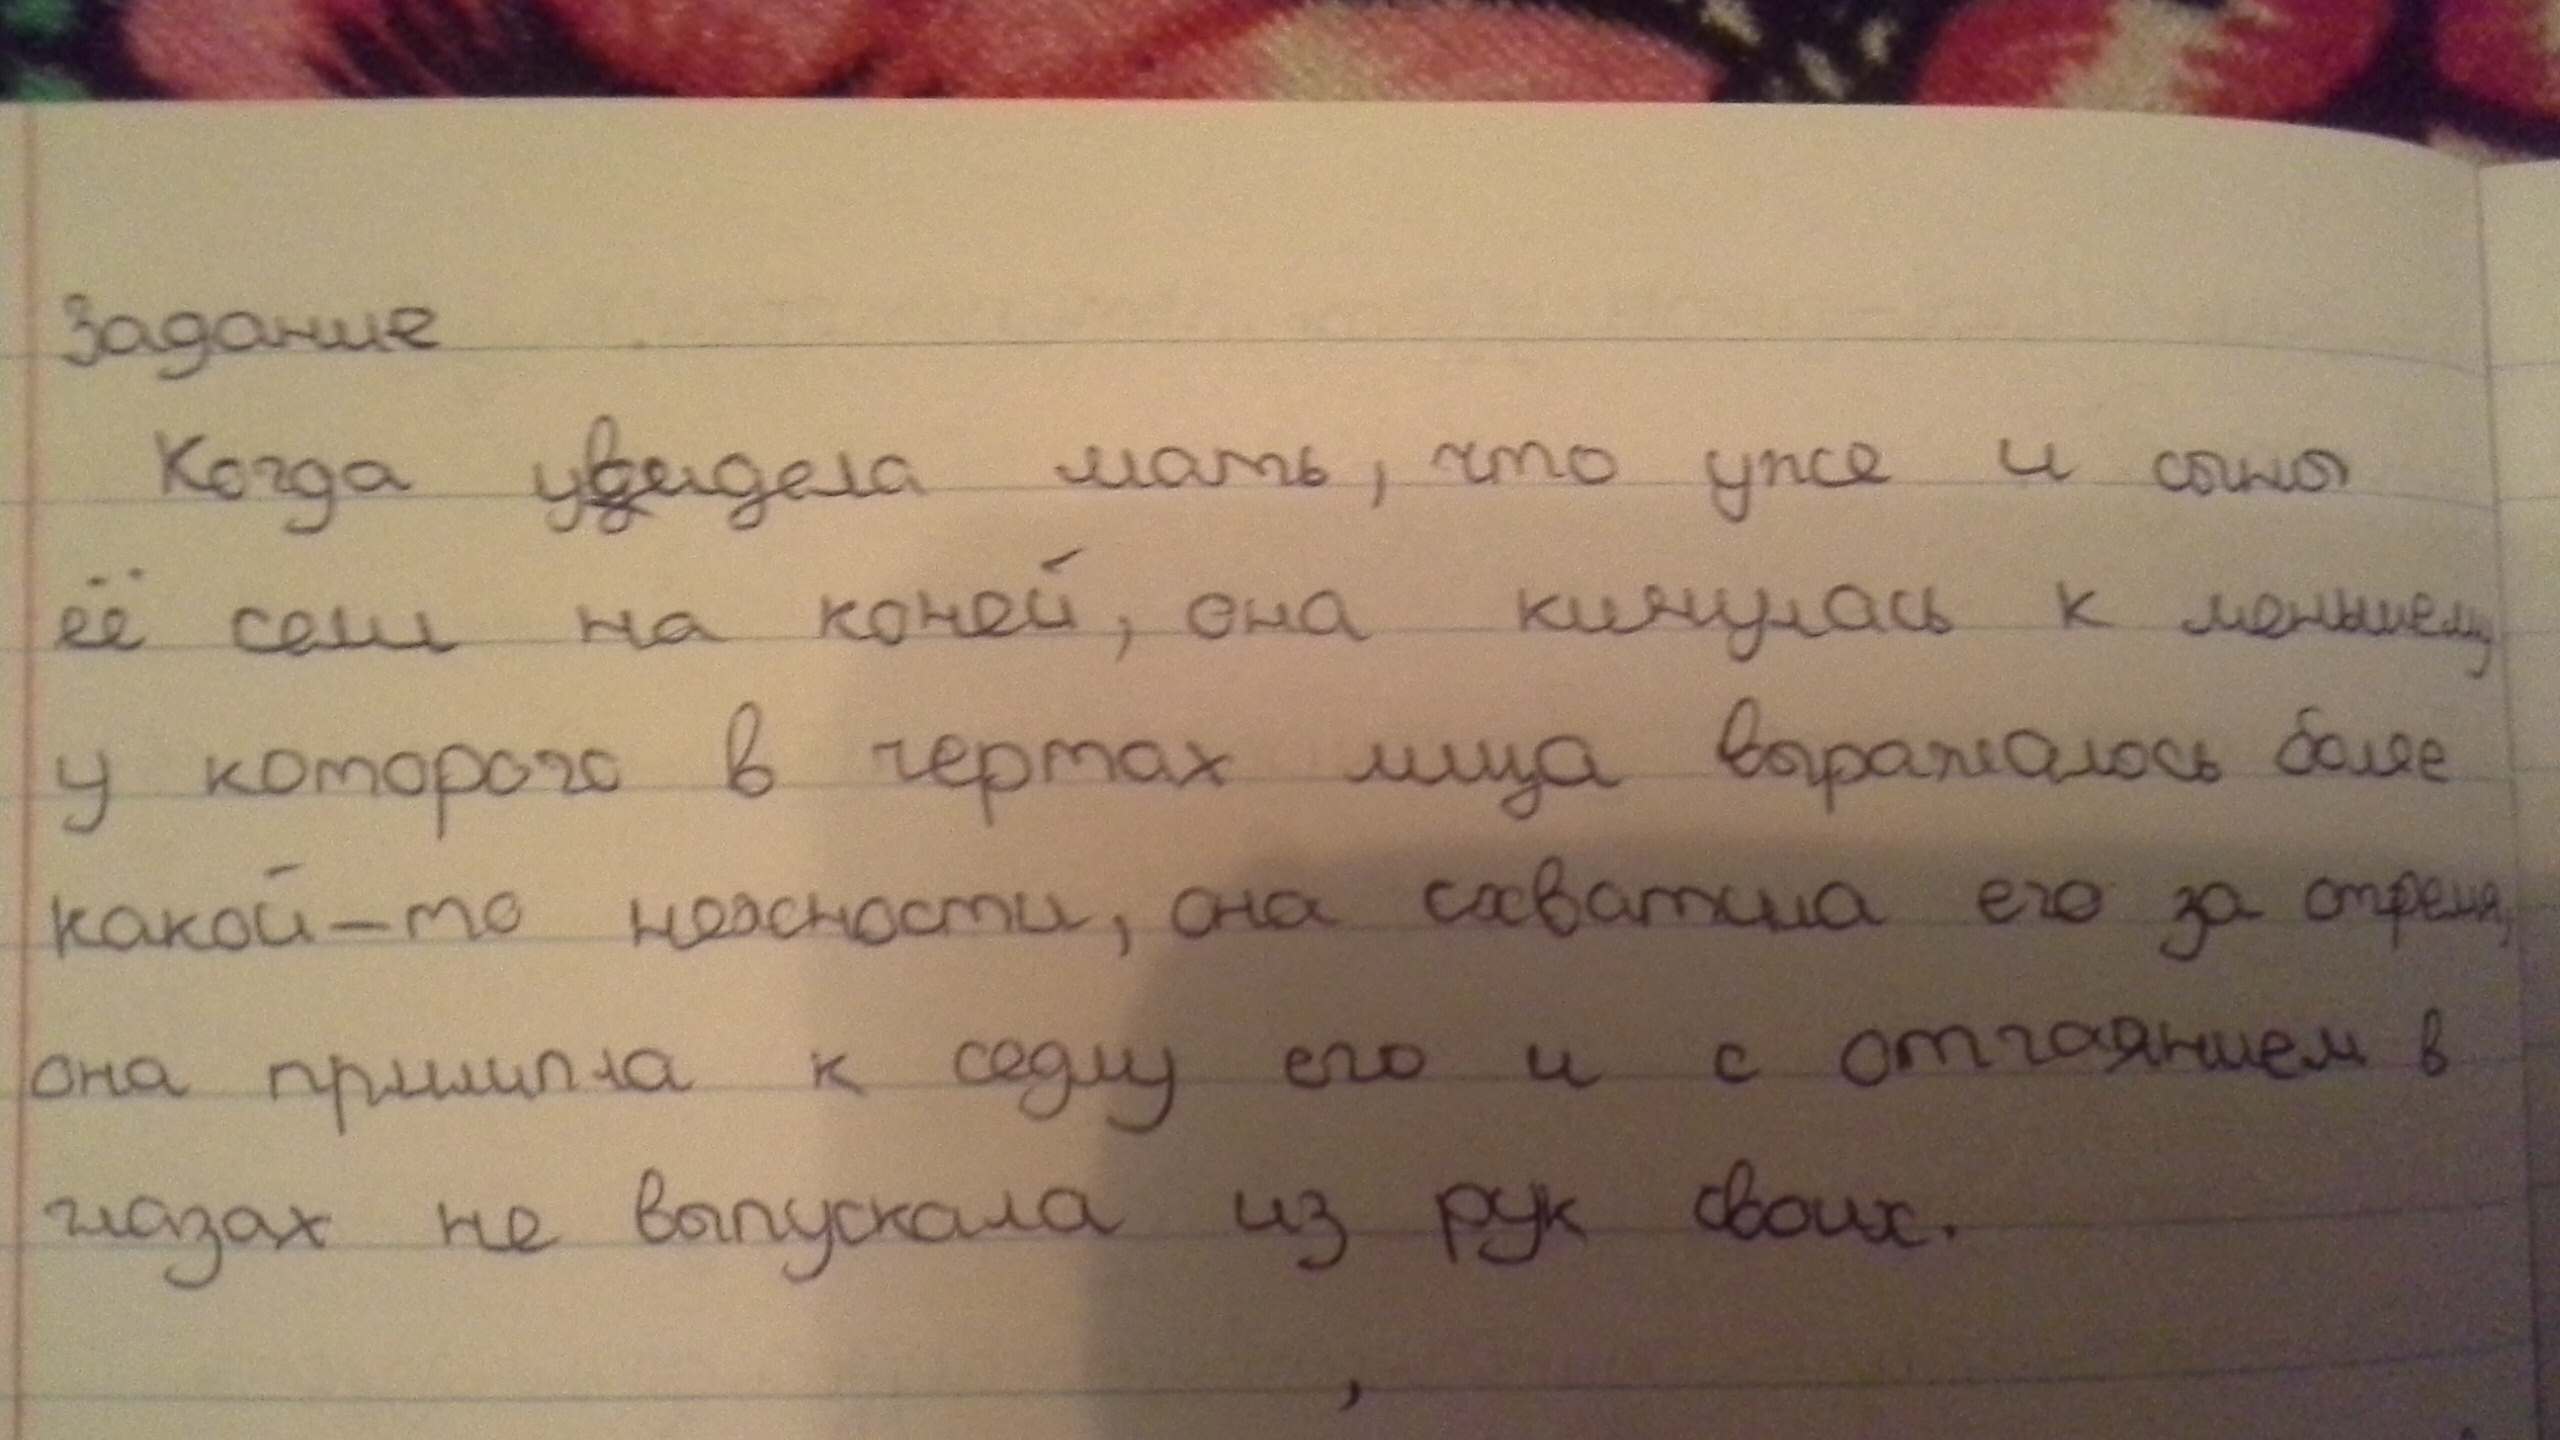 Задание
Когда увидела мать, что уже и сыны
её сели на коней, она кинулась к меньшему
у которого в чертах лица выражалось более
какой-то нежности, она схватила его за стремя,
она прилипла к седлу его и с отчаянием в
глазах не выпускала из рук своих.